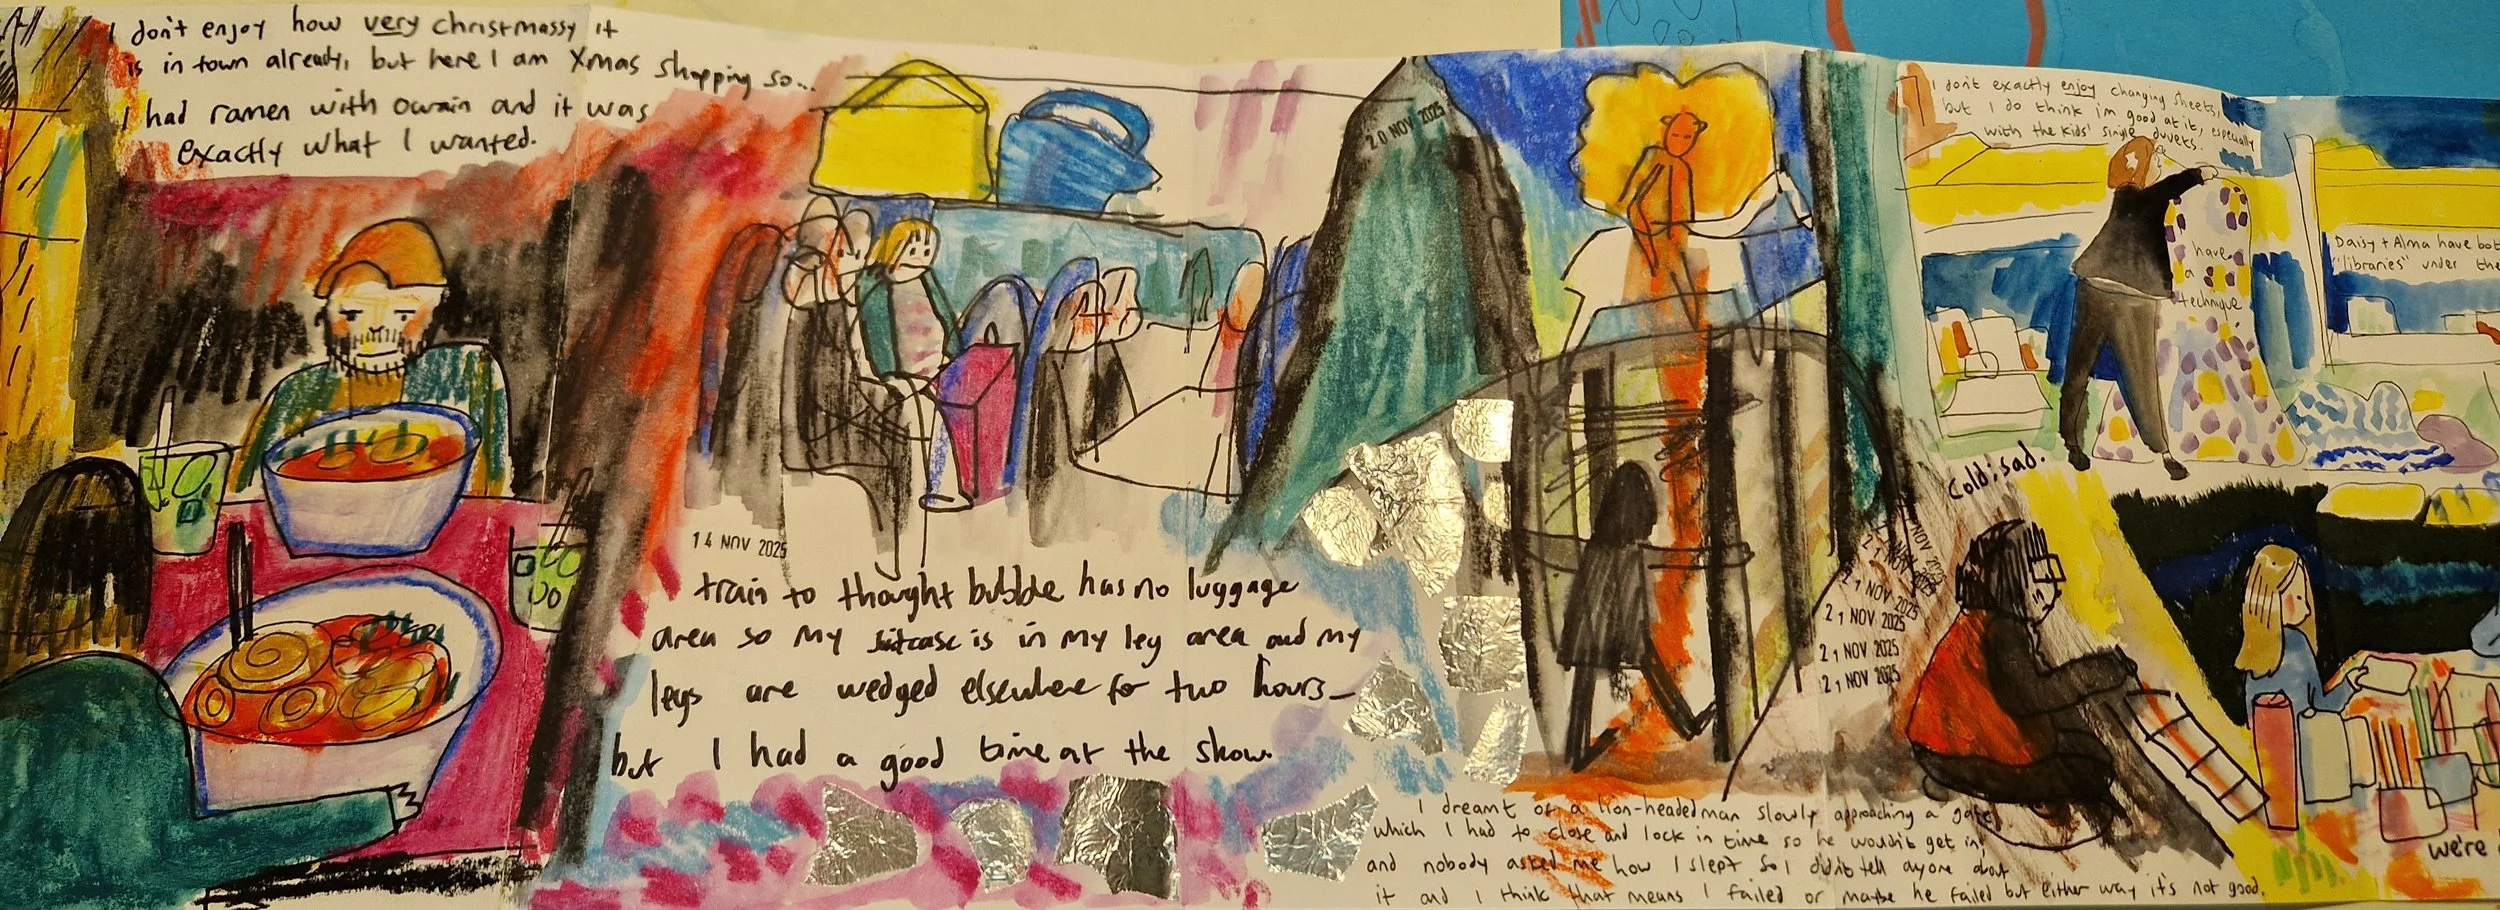 I don't enjoy how very christmassy it
is in town already, but here I am Xmas shopping so...
I had ramen with Owain and it was
exactly what I wanted.
14 NOV 2025
train to thought bubble has no luggage
area so my suitcase is in my leg area and my
legs are wedged elsewhere for two hours—
but I had a good time at the show.
20 NOV 2025
I dreamt of a lion-headed man slowly approaching a gate
which I had to close and lock in time so he wouldn't get in,
and nobody asked me how I slept so I didn't tell anyone about
it and I think that means I failed or maybe he failed but either way it's not good.
I don't exactly enjoy changing sheets,
but I do think i'm good at it, especially
with the kids' single duvets.
I have
a
technique
Daisy + Alma have bot
"libraries" under the
cold; sad.
NOV 2025
21 NOV 2025
21 NOV 2025
21 NOV 2025
21 NOV 2025
21 NOV 2025
21 NOV 2025
we're